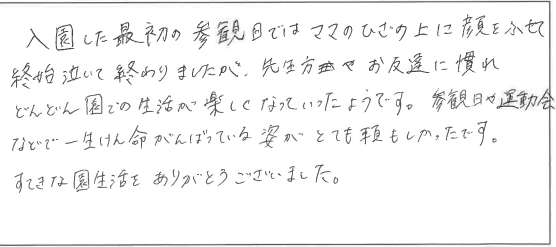 入園した最初の参観日ではママのひざの上に顔をふせて
終始泣いて終わりましたが、先生方やお友達に慣れ
どんどん園での生活が楽しくなっていったようです。参観日や運動会
などで一生けん命がんばっている姿がとても頼もしかったです。
すてきな園生活をありがとうございました。